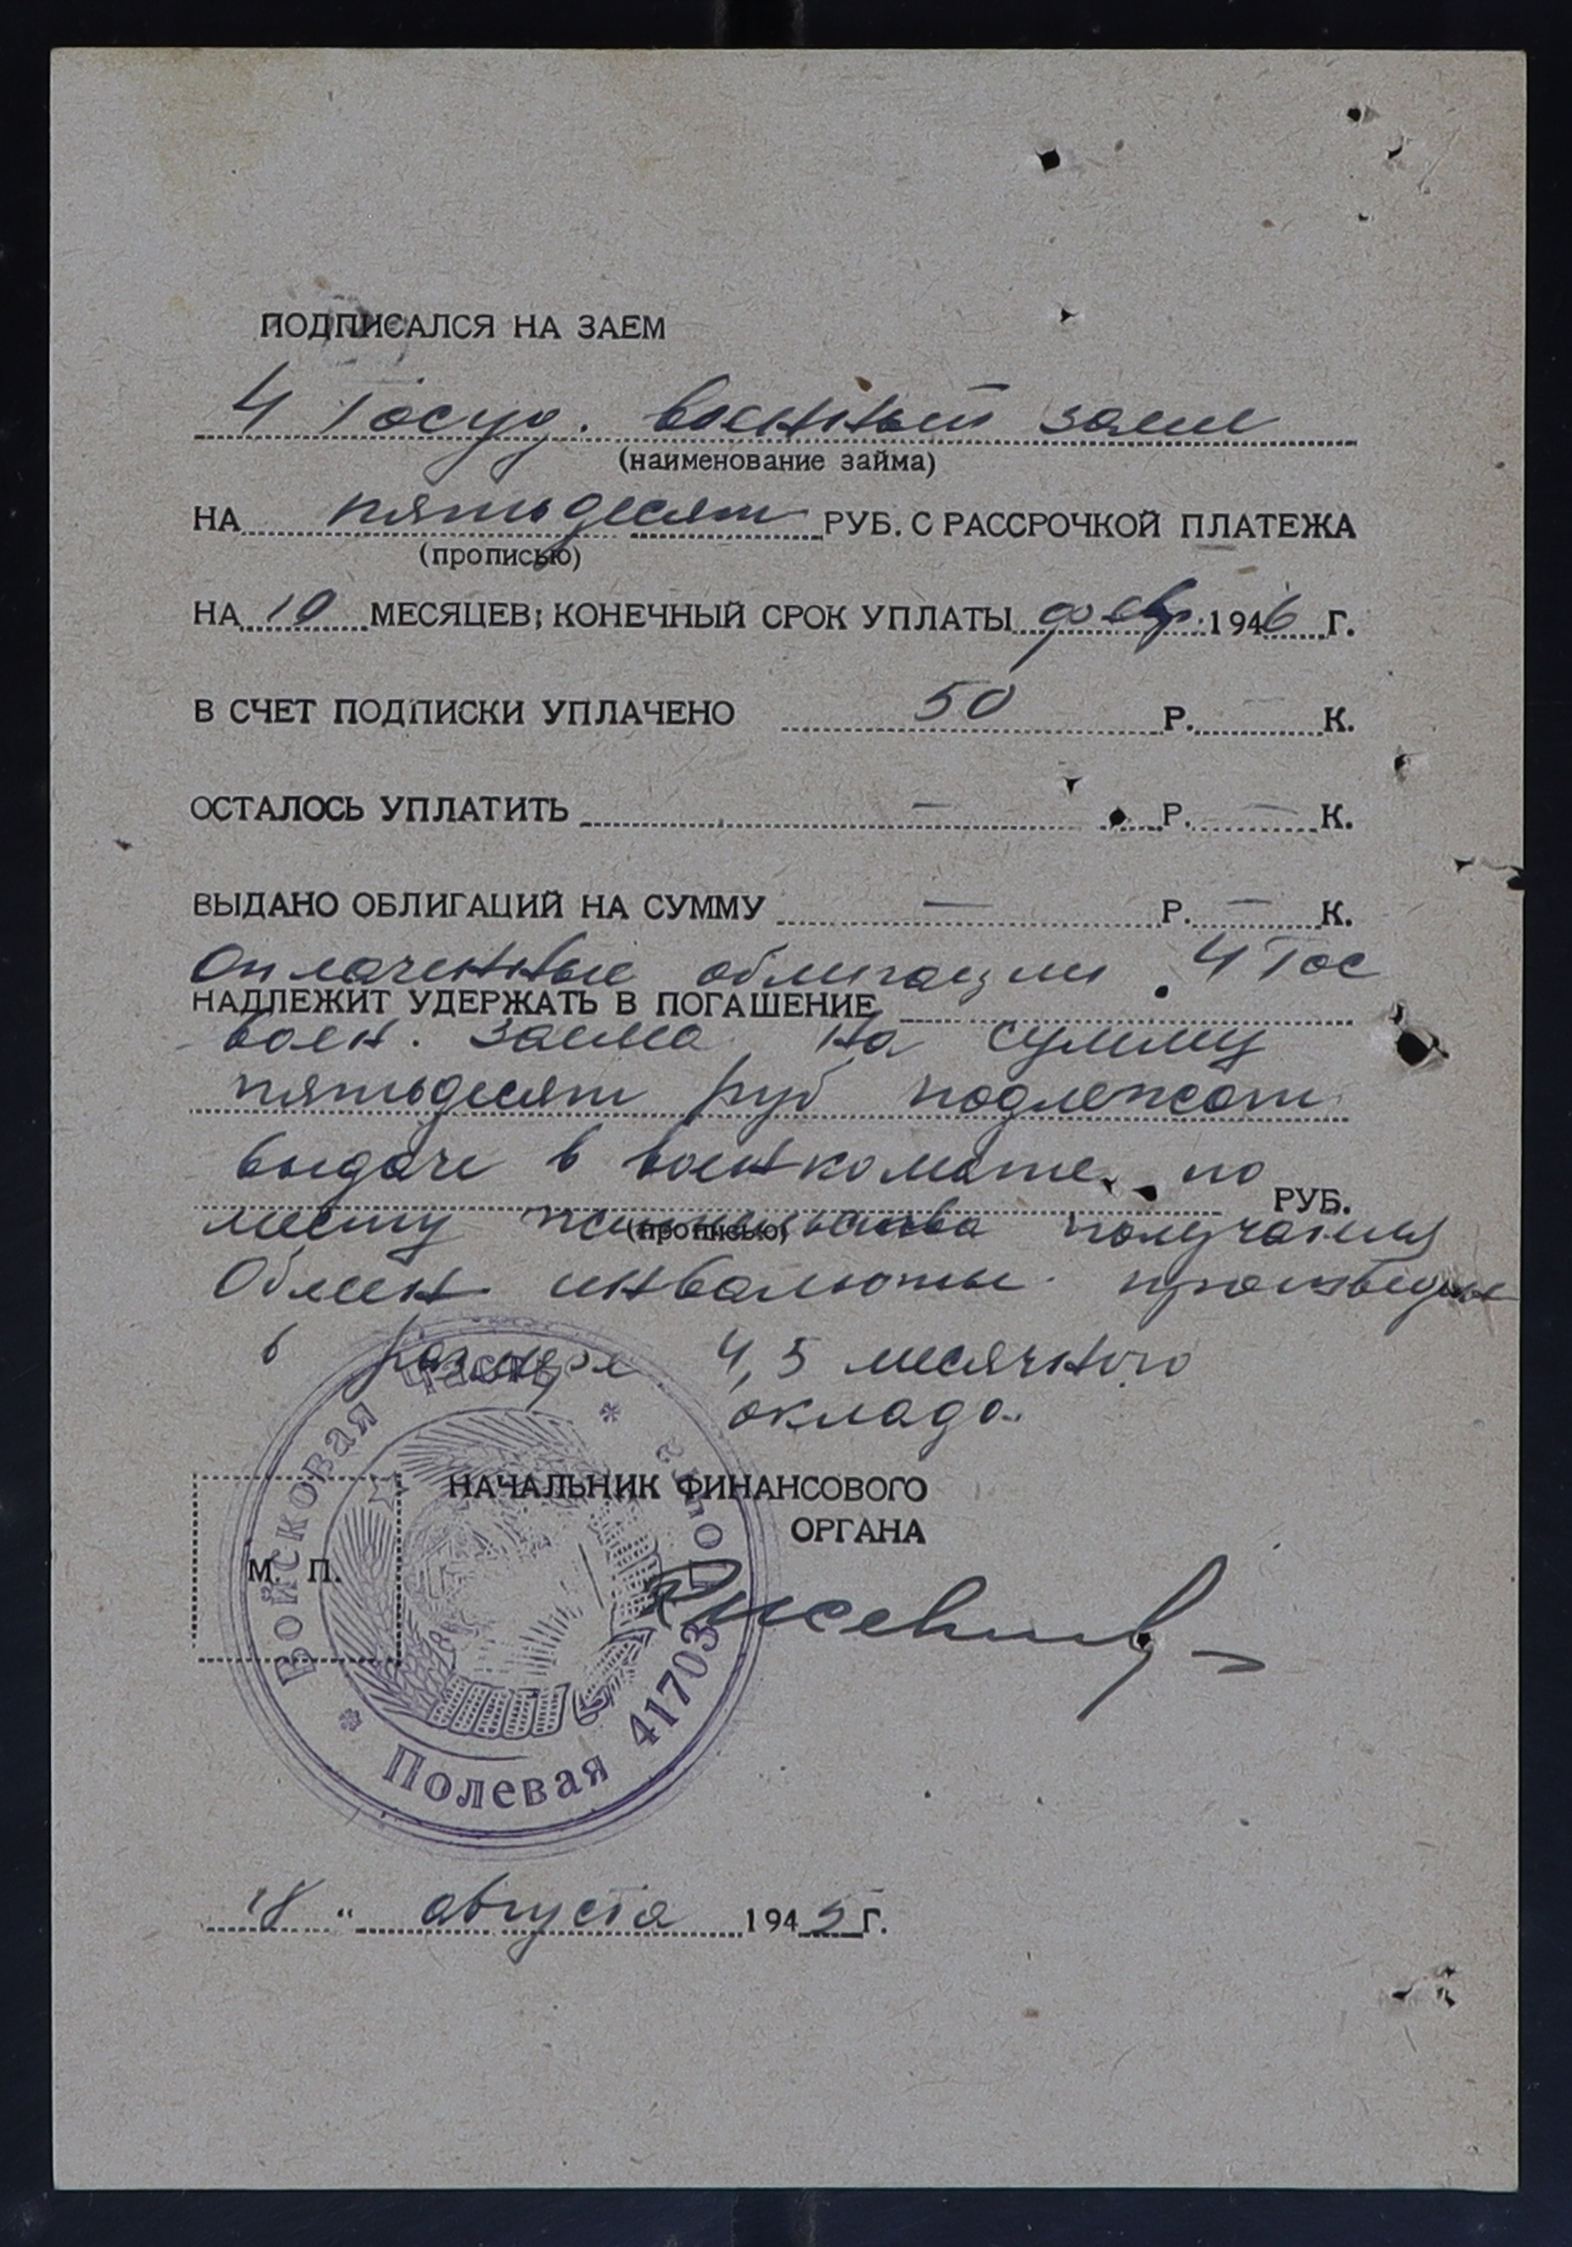 ПОДПИСАЛСЯ НА ЗАЕМ
4 Госуд. военный заем
(наименование займа)
НА пятьдесят РУБ. С РАССРОЧКОЙ ПЛАТЕЖА
(прописью)
НА 10 МЕСЯЦЕВ; КОНЕЧНЫЙ СРОК УПЛАТЫ февр. 1946 Г.
В СЧЕТ ПОДПИСКИ УПЛАЧЕНО 50 Р. — К.
ОСТАЛОСЬ УПЛАТИТЬ — Р. — К.
ВЫДАНО ОБЛИГАЦИЙ НА СУММУ — Р. — К.
Оплаченные облигации 4 Гос
НАДЛЕЖИТ УДЕРЖАТЬ В ПОГАШЕНИЕ
воен. заема на сумму
пятьдесят руб подлежат
выдаче в военкомате по
РУБ.
месту получения
(прописью)
Обмен инвалюты произведен
в размере 4,5 месячного
оклада.
НАЧАЛЬНИК ФИНАНСОВОГО
ОРГАНА
М. П.
Войсковая часть
Полевая почта
41703
18 " августа 1945 Г.